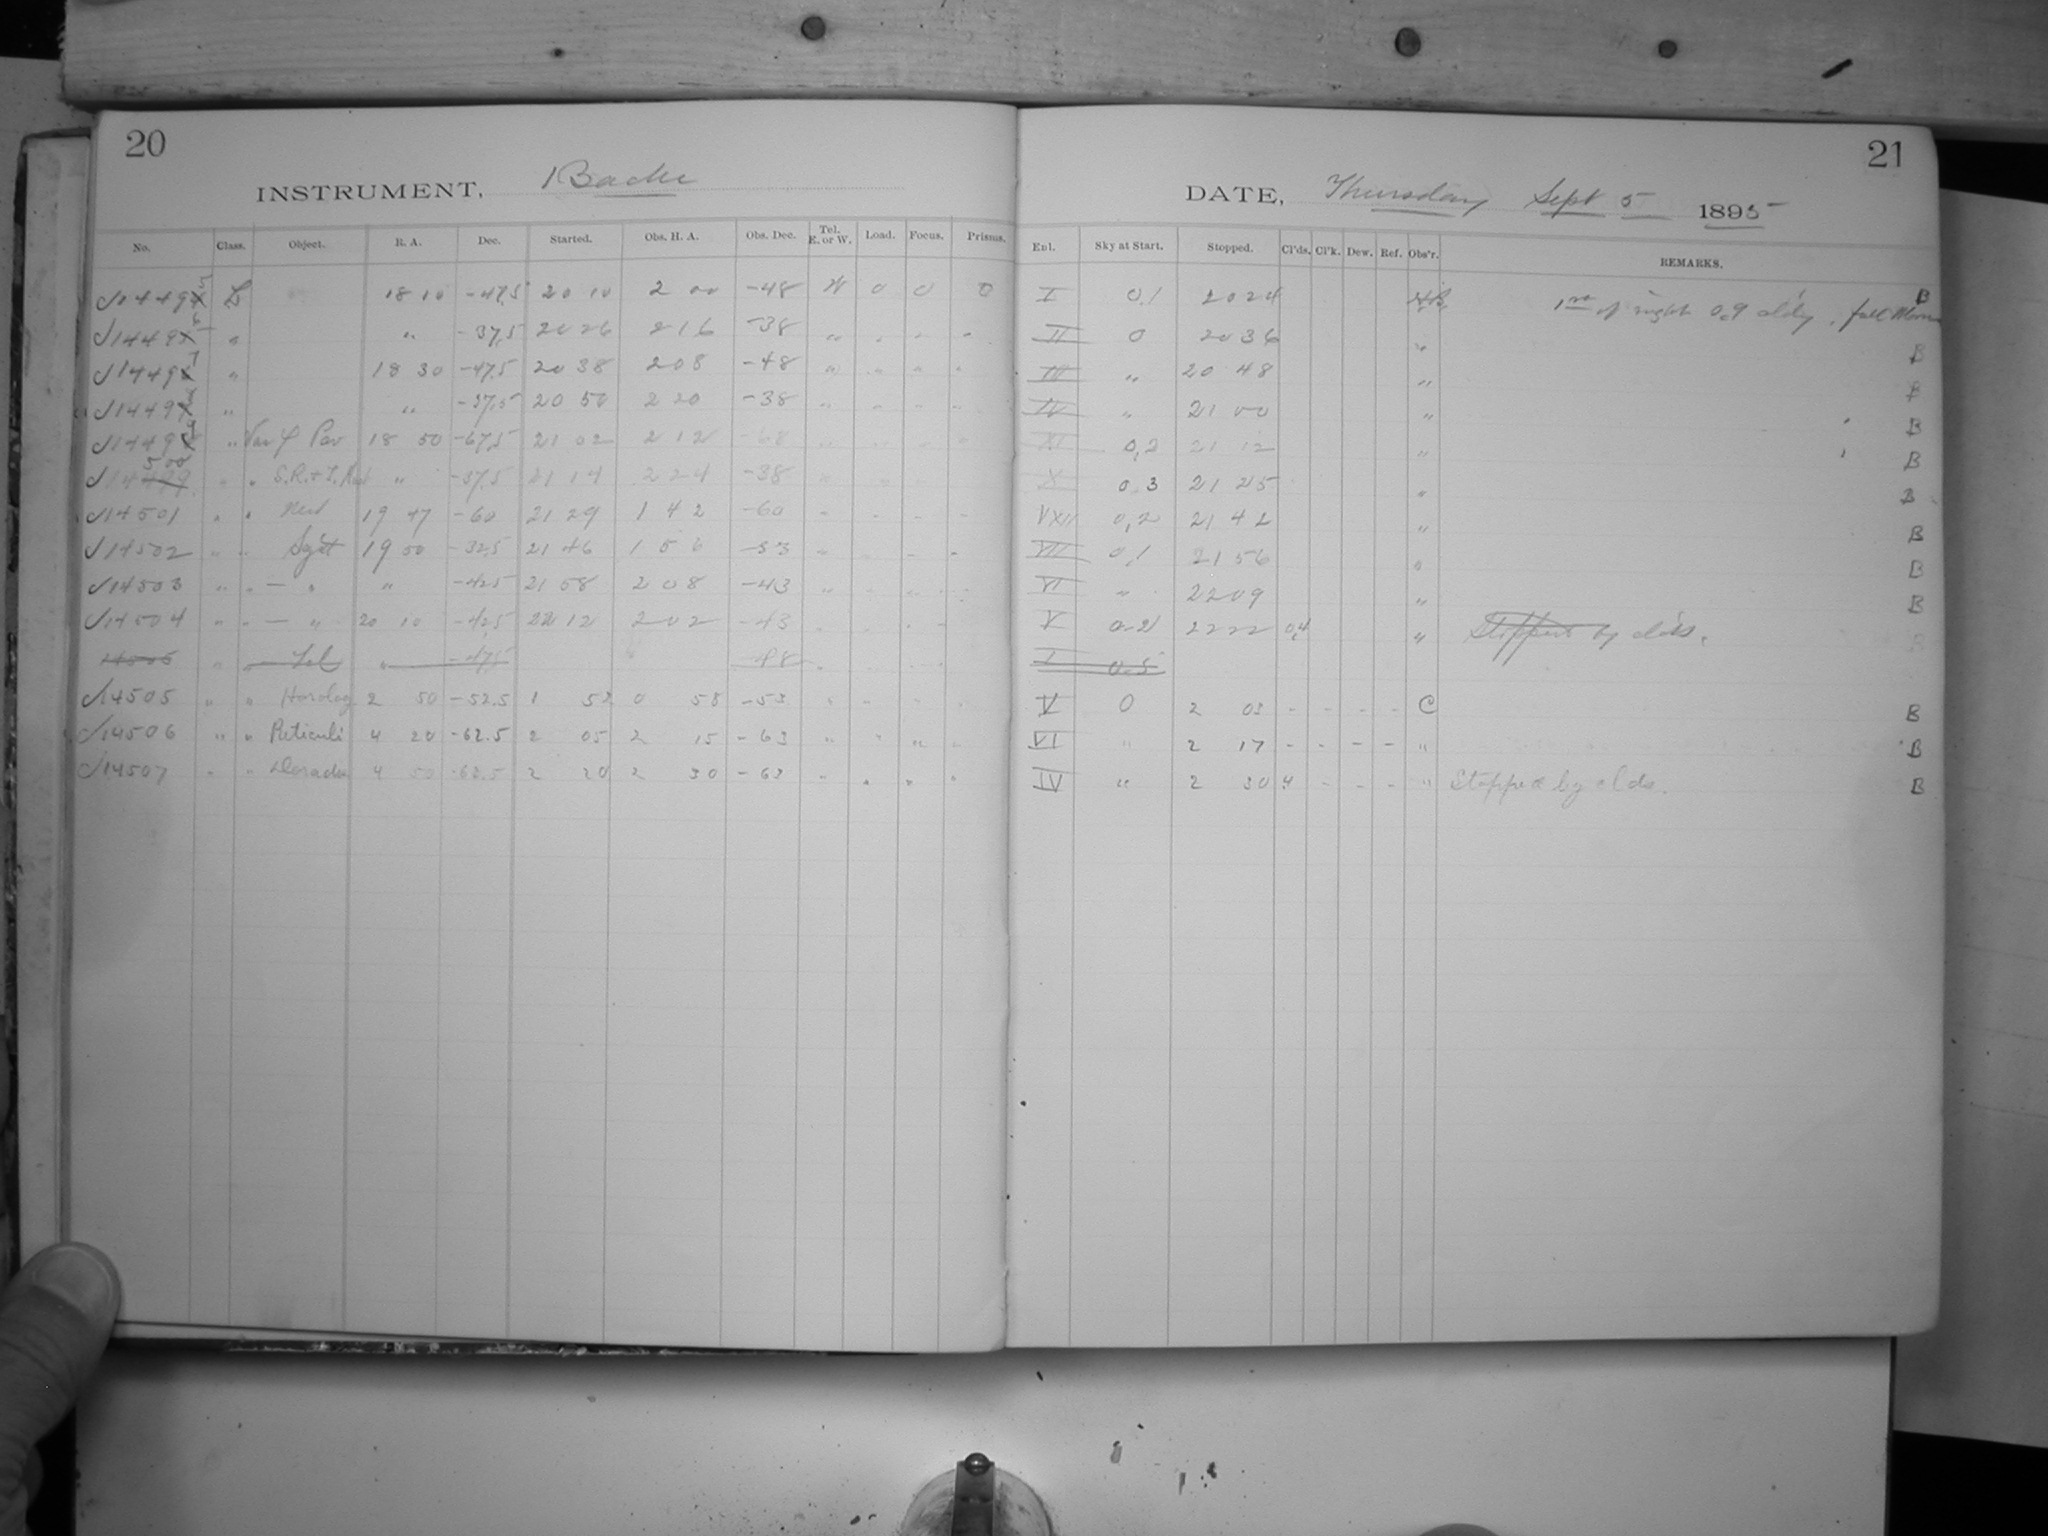 20
INSTRUMENT, Bache
No. Class. Object. R. A. Dec. Started. Obs. H. A. Obs. Dec. Tel. E. or W. Load. Focus. Prisms.
L 18 10 -47.5 20 10 2 00 -48 W 0 0 0
" " -37.5 20 26 2 16 -38 " " " "
" 18 30 -47.5 20 38 2 08 -48 " " " "
" " -37.5 20 50 2 20 -38 " " " "
" Pav 18 50 -67.5 21 02 2 12 -68
" " " -37.5 21 14 2 24 -38
14501 " " 19 47 -60 21 29 1 42 -60 " " " "
14502 " " Sgtt 19 50 -32.5 21 46 1 56 -33 " " " "
14503 " " — " " -42.5 21 58 2 08 -43 " " " "
14504 " " — " 20 10 -42.5 22 12 2 02 -43 " " " "
14505 " Tel " -47.5 -48 "
14505 " " Horolog 2 50 -52.5 1 52 0 58 -53 " " " "
14506 " " Reticuli 4 20 -62.5 2 05 2 15 -63 " " " "
14507 " " Dorado 4 50 -62.5 2 20 2 30 -63 " " " "
21
DATE, Thursday Sept 5 1895
Exl. Sky at Start. Stopped. Cl'ds. Cl'k. Dew. Ref. Obs'r. REMARKS.
I 0.1 20 24 1st of night 0.9 cldy. full Moon B
II 0 20 36 " B
III " 20 48 " B
IV " 21 00 " B
XI 0,2 21 12 " B
X 0.3 21 25 " B
0,2 21 42 " B
VII 0,1 21 56 " B
VI " 22 09 " B
V 22 22 0,4 " Stopped by clds. B
I 0.5
V 0 2 03 - - - - C B
VI " 2 17 - - - - " B
IV " 2 30 4 - - - " Stopped by clds. B